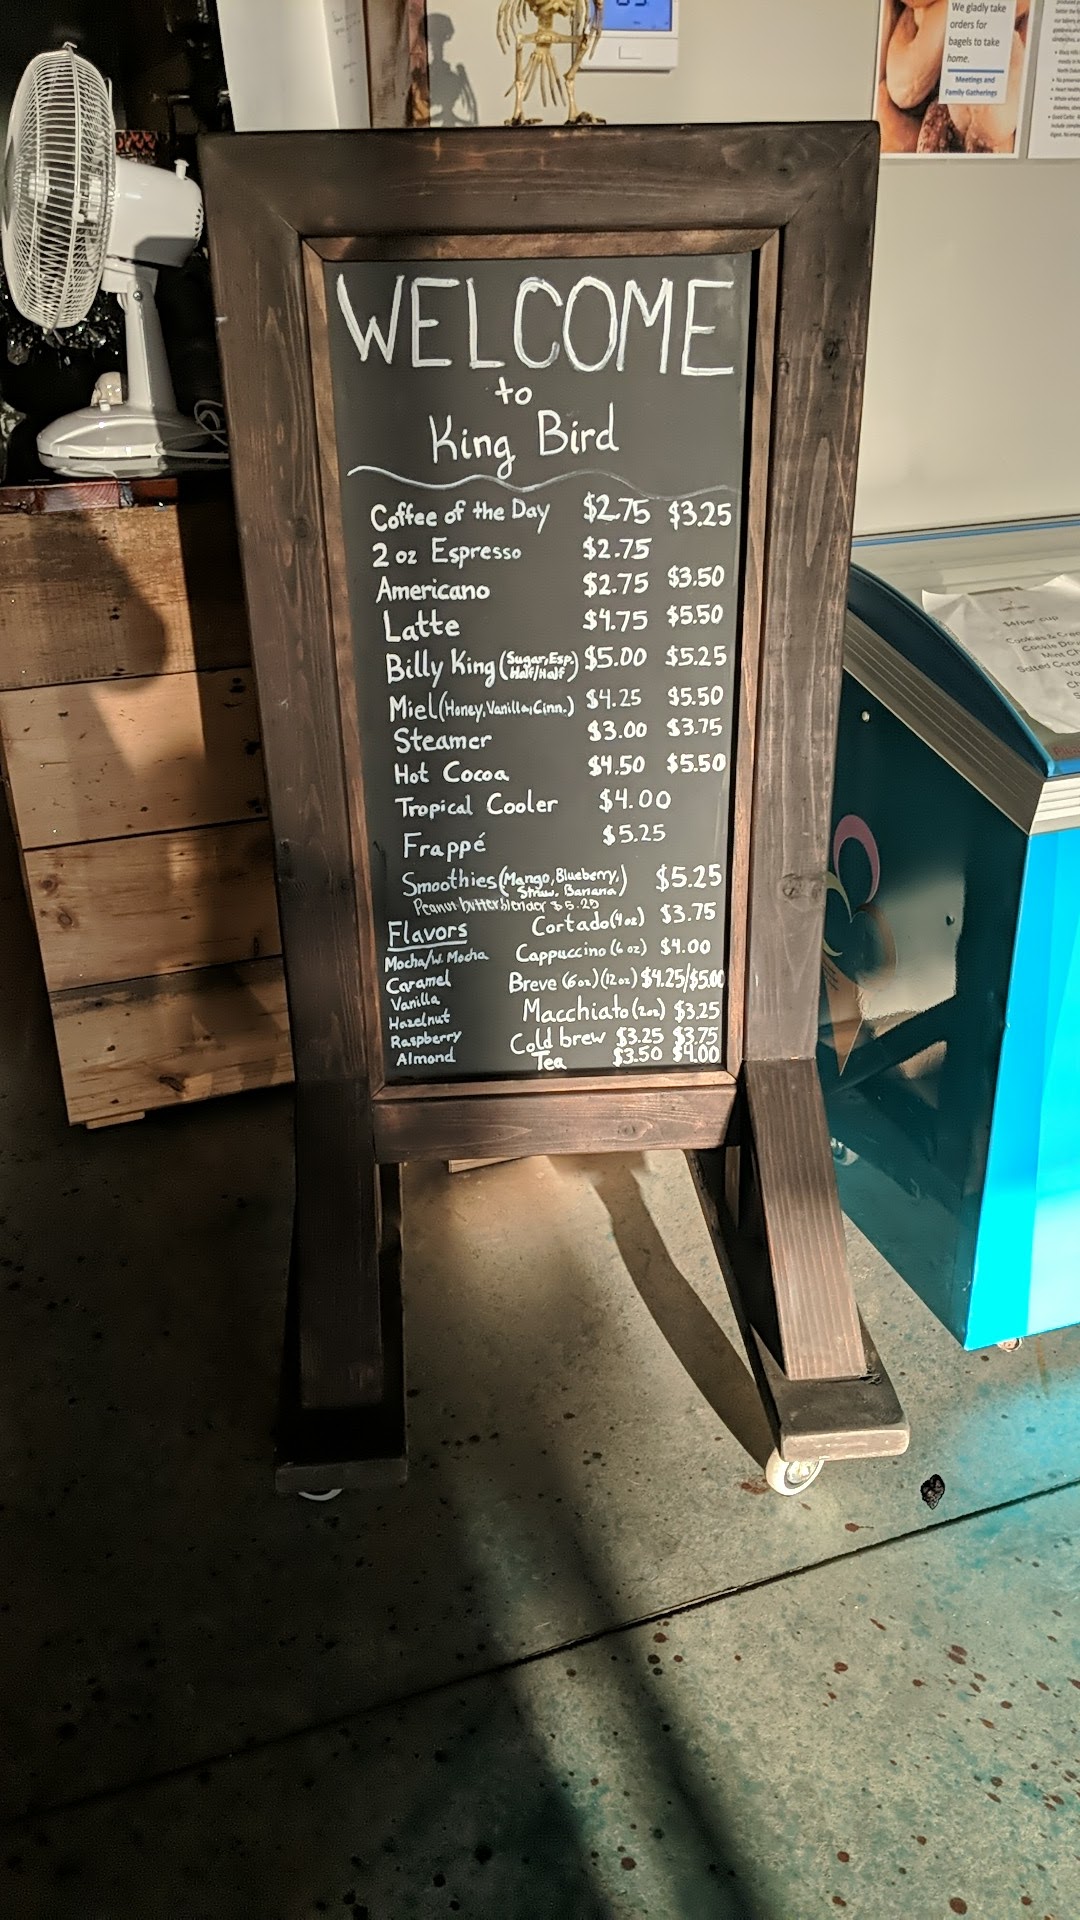 We gladly take
orders for
bagels to take
home.
Meetings and
Family Gatherings
WELCOME
to
King Bird
Coffee of the Day $2.75 $3.25
2 oz Espresso $2.75
Americano $2.75 $3.50
Latte $4.75 $5.50
Billy King (Sugar, Esp. Half/Half) $5.00 $5.25
Miel (Honey, Vanilla, Cinn.) $4.25 $5.50
Steamer $3.00 $3.75
Hot Cocoa $4.50 $5.50
Tropical Cooler $4.00
Frappé $5.25
Smoothies (Mango, Blueberry, Straw. Banana) $5.25
Peanut butter blender $5.25
Flavors
Mocha/W. Mocha
Caramel
Vanilla
Hazelnut
Raspberry
Almond
Cortado (4oz) $3.75
Cappuccino (6 oz) $4.00
Breve (6oz) (12oz) $4.25/$5.00
Macchiato (2oz) $3.25
Cold brew $3.25 $3.75
Tea $3.50 $4.00
Mint
Salted